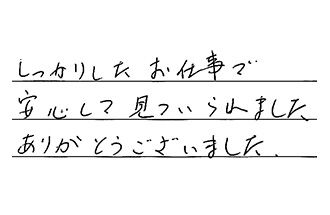 しっかりしたお仕事で
安心して見ていられました
ありがとうございました.